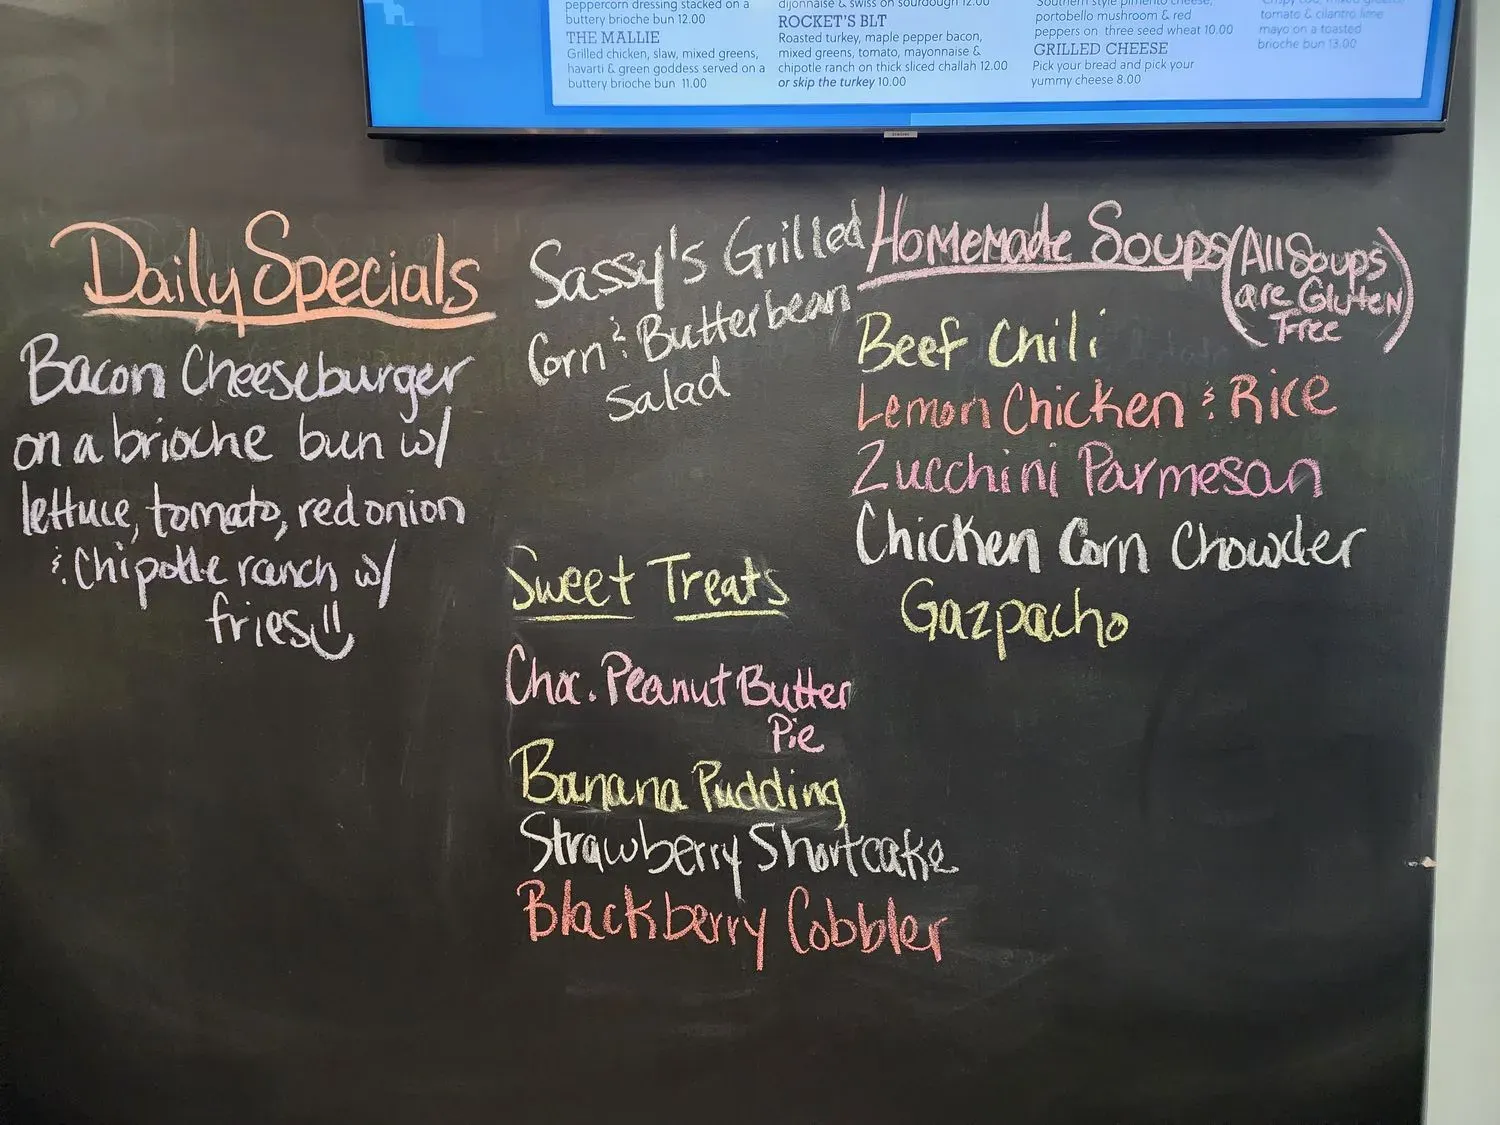 peppercorn dressing stacked on a
buttery brioche bun 12.00
THE MALLIE
Grilled chicken, slaw, mixed greens,
havarti & green goddess served on a
buttery brioche bun 11.00
dijonnaise & swiss on sourdough 12.00
ROCKET'S BLT
Roasted turkey, maple pepper bacon,
mixed greens, tomato, mayonnaise &
chipotle ranch on thick sliced challah 12.00
or skip the turkey 10.00
Southern style pimento cheese,
portobello mushroom & red
peppers on three seed wheat 10.00
GRILLED CHEESE
Pick your bread and pick your
yummy cheese 8.00
tomato & cilantro lime
mayo on a toasted
brioche bun 13.00
SAMSUNG
Daily Specials
Bacon Cheeseburger
on a brioche bun w/
lettuce, tomato, red onion
& Chipotle ranch w/
fries
Sassy's Grilled
Corn & Butterbean
Salad
Sweet Treats
Choc. Peanut Butter
Pie
Banana Pudding
Strawberry Shortcake
Blackberry Cobbler
Homemade Soups (All Soups
are Gluten
Free)
Beef Chili
Lemon Chicken & Rice
Zucchini Parmesan
Chicken Corn Chowder
Gazpacho